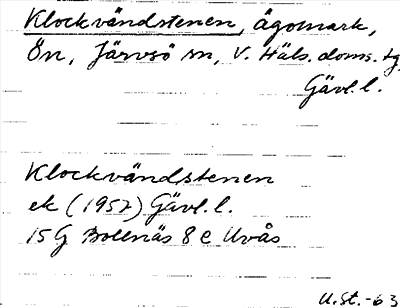 Klockvändstenen, ägomark,
Ön, Järvsö sn, V. Häls. doms. tg
Gävl. l.
Klockvändstenen
ek (1957) Gävl. l.
15G Bollnäs 8e Uvås
U. St. -63